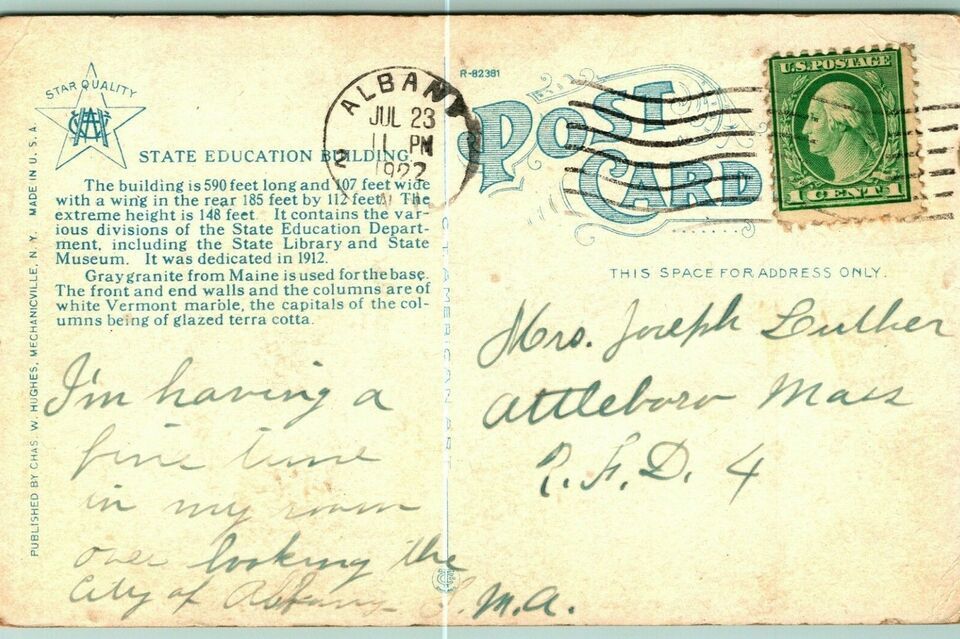 STAR QUALITY
STATE EDUCATION BUILDING
The building is 590 feet long and 107 feet wide
with a wing in the rear 185 feet by 112 feet. The
extreme height is 148 feet. It contains the var-
ious divisions of the State Education Depart-
ment, including the State Library and State
Museum. It was dedicated in 1912.
Gray granite from Maine is used for the base.
The front and end walls and the columns are of
white Vermont marble, the capitals of the col-
umns being of glazed terra cotta.
PUBLISHED BY CHAS. W. HUGHES, MECHANICVILLE, N. Y. MADE IN U. S. A.
I'm having a
fine time
in my room
over looking the
City of Albany
M.A.
ALBANY
JUL 23
11 PM
1922
R-82381
POST
CARD
U.S. POSTAGE
1 CENT 1
THIS SPACE FOR ADDRESS ONLY.
Mrs. Joseph Luther
Attleboro Mass
R.F.D. 4